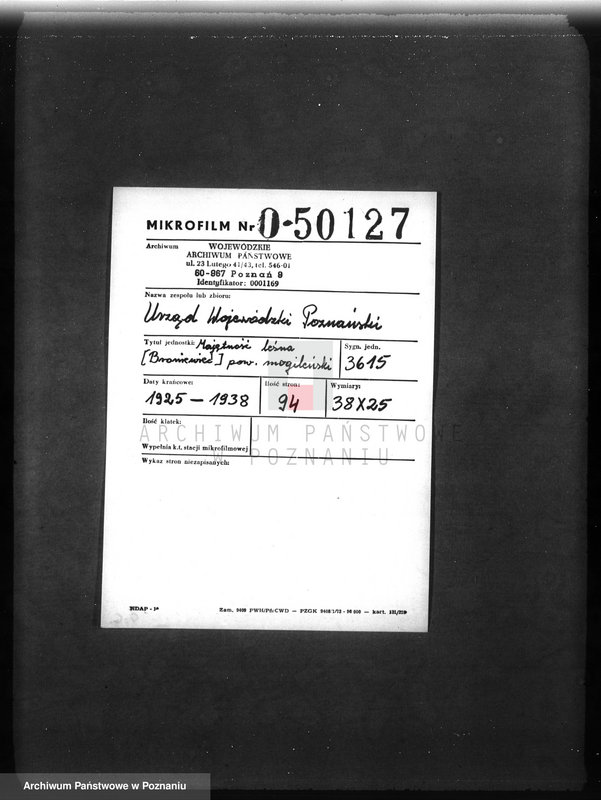 MIKROFILM Nr O-50127
Archiwum
WOJEWÓDZKIE
ARCHIWUM PAŃSTWOWE
ul. 23 Lutego 41/43, tel. 546-01
60-967 Poznań 9
Identyfikator: 0001169
Nazwa zespołu lub zbioru:
Urząd Wojewódzki Poznański
Tytuł jednostki: Majętność leśna
[Broniewice] pow. mogileński
Sygn. jedn.
3615
Daty krańcowe:
1925 — 1938
Ilość stron:
94
Wymiary:
38X25
Ilość klatek:
ARCHIWUM PAŃSTWOWE
W POZNANIU
Wypełnia k.t. stacji mikrofilmowej
Wykaz stron niezapisanych:
NDAP -
Zam. PZGK — kart.
Archiwum Państwowe w Poznaniu